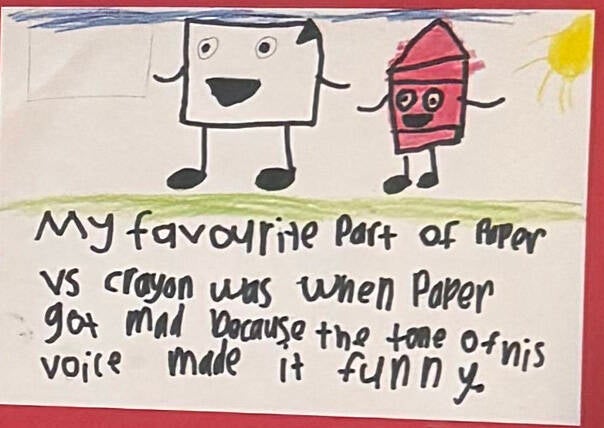 My favourite Part of Paper
vs crayon was when Paper
got mad because the tone of his
voice made it funny.